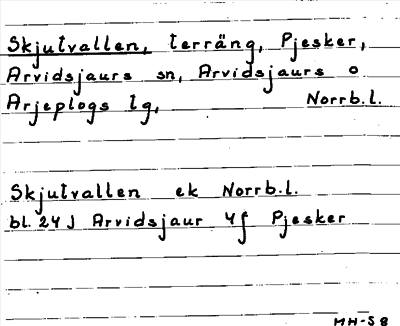 Skjutvallen, terräng, Pjesker,
Arvidsjaurs sn, Arvidsjaurs o
Arjeplogs tg, Norrb.l.
Skjutvallen ek Norrb.l.
bl. 24 J Arvidsjaur 4f Pjesker
MH-58